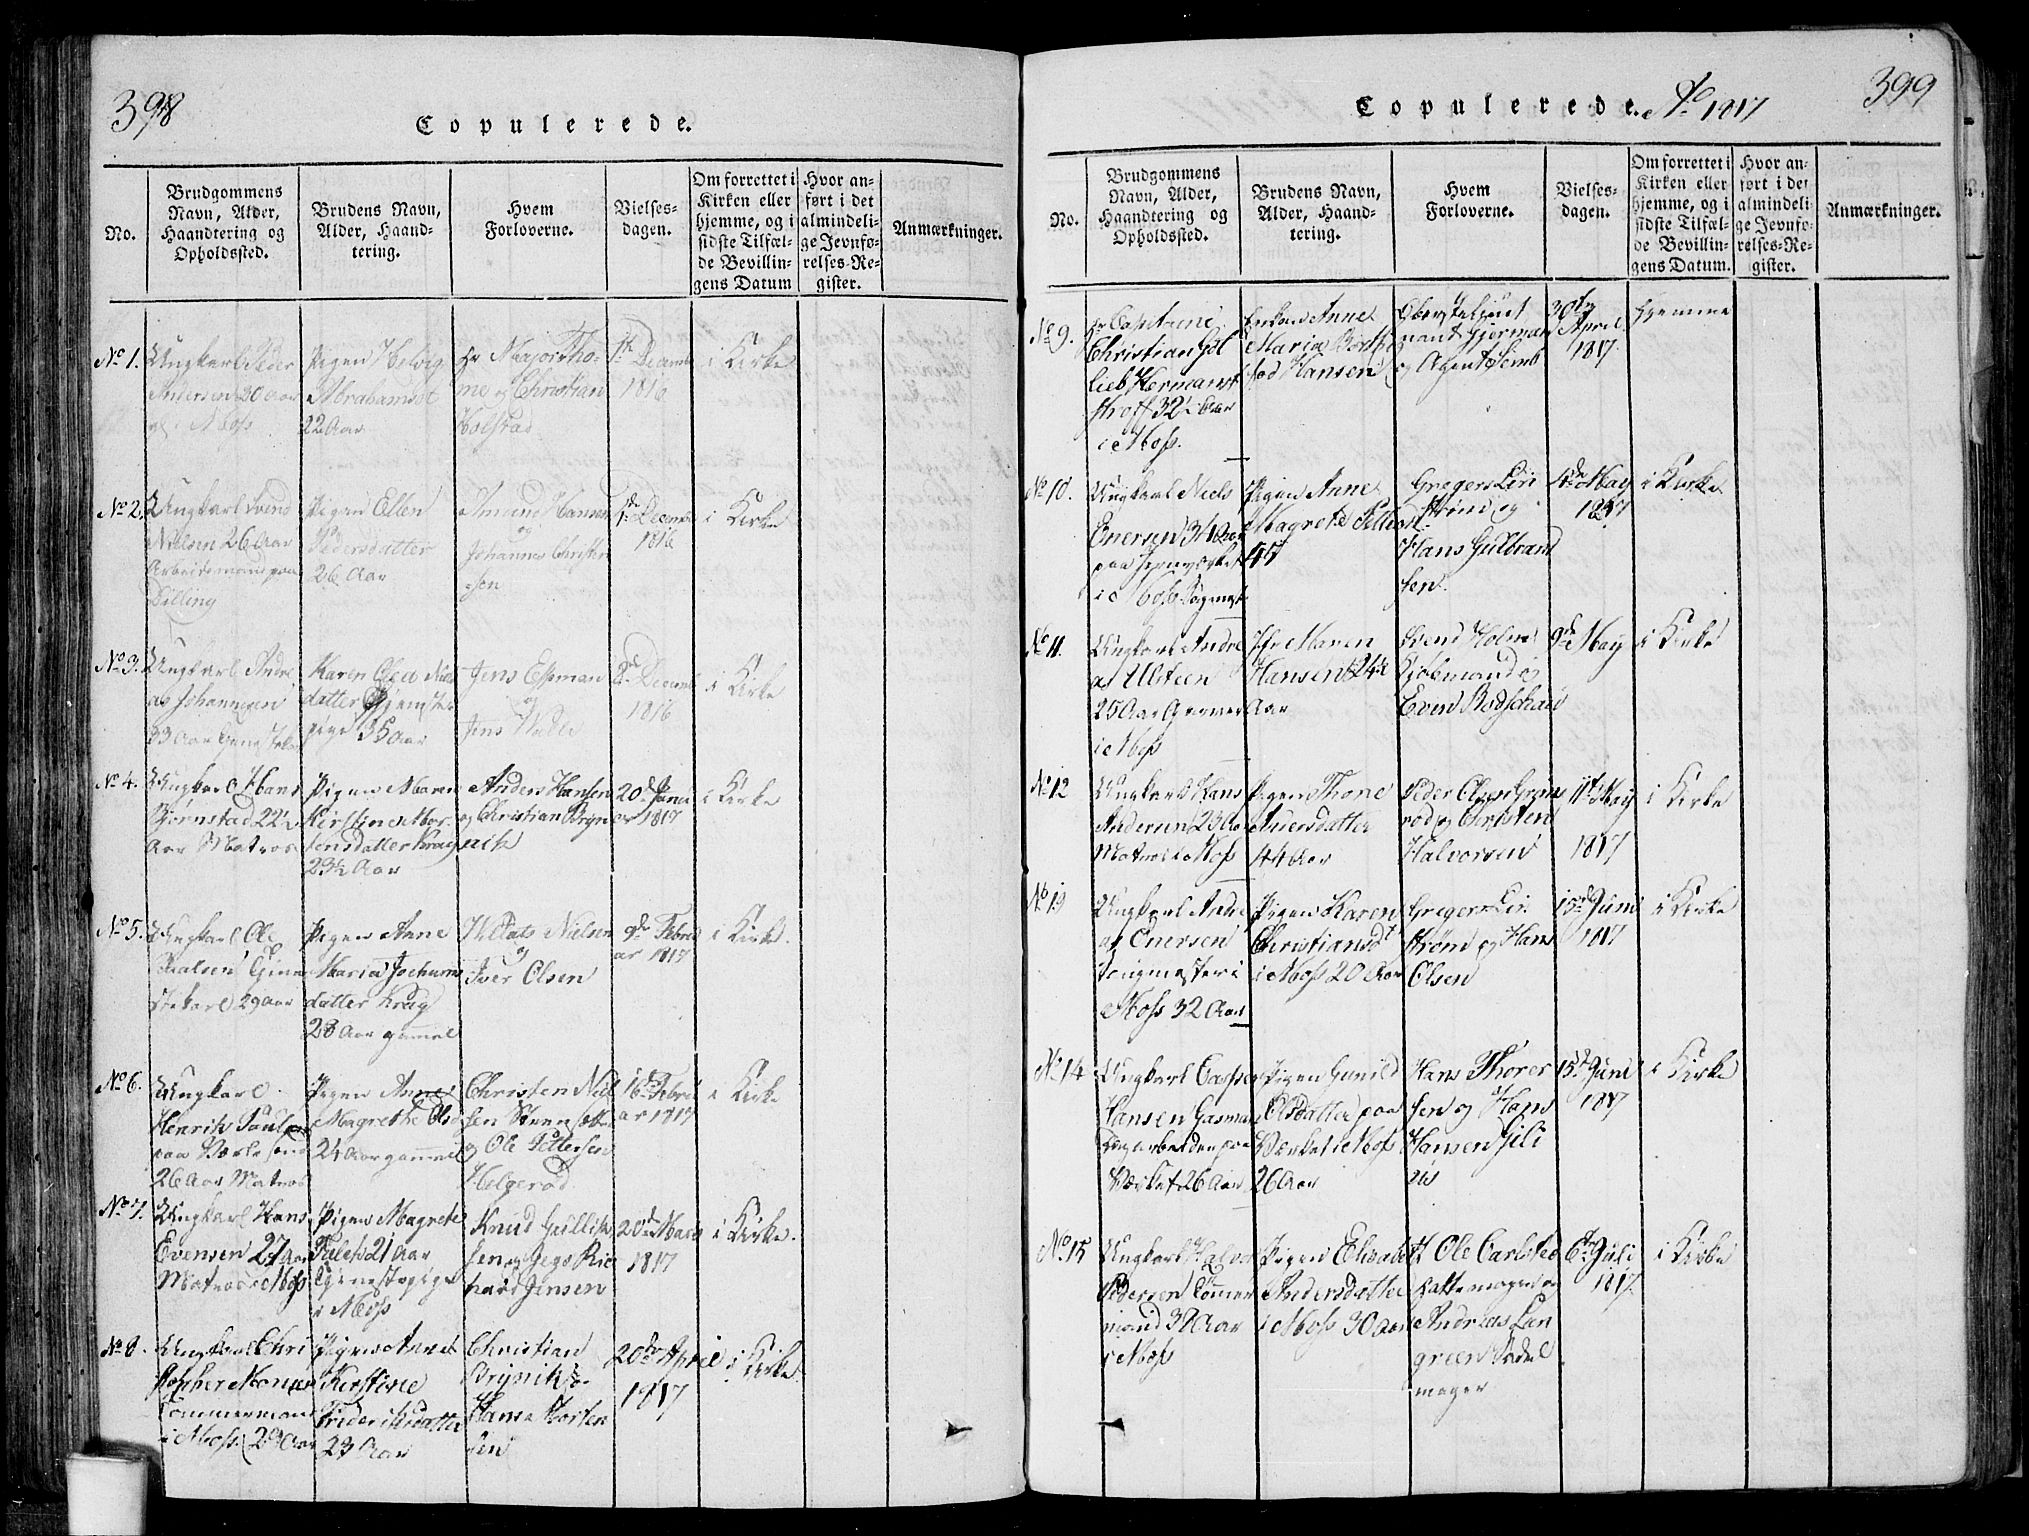 398
Copulerede.
No.
Brudgommens
Navn, Alder,
Haandtering og
Opholdssted.
Brudens Navn,
Alder, Haand-
tering.
Hvem
Forloverne.
Vielses-
dagen.
Om forrettet i
Kirken eller
hjemme, og i
sidste Tilfæl-
de Bevillin-
gens Datum
Hvor an-
ført i det
almindeli-
ge Jevnfø-
relses-Re-
gister.
Anmærkninger.
No 1.
Ungkarl Peder
Andersen 30 Aar
Moss
Pigen Helvig
Abrahamsd
22 Aar
Hr Major Tho-
me og Christian
Holstad
1te Decemb
1816
i Kirke
No 2.
Ungkarl Svend
Nielsen 26 Aar
Arbeidsmand paa
Dilling
Pigen Ellen
Pedersdatter
26 Aar
Amund Hansen
og
Johannes Christen
sen
1de Decemb
1816
i Kirke
No 3.
Ungkarl Andre
as Johannesen
33 Aar
Karen Olea Niels
datter Tjeneste
pige 35 Aar
Jens Essman
og
Jens
2de Decemb
1816
i Kirke
No 4.
Ungkarl Hans
Bjørnstad 22½
Aar Matros
Pigen Maren
Kirstine Mor-
tensdatter Krag
29½ Aar
Anders Hansen
og Christian Bryn
nik
20de Janu
ar 1817
i Kirke
No 5.
Ungkarl Ole
Gine
stekarl 29 Aar
Pigen Anne
Maria Jochums
datter Krag
28 Aar gammel
Nielsen
og
Iver Olsen
9de Febru
ar 1817
i Kirke.
No 6.
Ungkarl
Henrik Paulsen
paa
26 Aar Matros
Pigen Anne
Magrethe Ols
24 Aar gammel
Christen Niel
sen
og Ole Pettersen
Helgerød
16de Febru
ar 1817
i Kirke
No 7.
Ungkarl Hans
Evensen 27 Aar
Matros i Moss
Pigen Magrete
Falch 21 Aar
Tjenestepige
i Moss
Knud Gullik
sen og Jegs Ric
hart Jensen
20de Marts
1817
i Kirke.
No 8.
Ungkarl Chri
stopher Monsen
Tømmermand
i Moss 29 Aar
Pigen Anne
Kirstine
Frideriksdatter
23 Aar
Christian
Brynik og
Hans Morten
sen
20de April
1817
i Kirke
399
Copulerede. Ao 1817
No.
Brudgommens
Navn, Alder,
Haandtering og
Opholdssted.
Brudens Navn,
Alder, Haand-
tering.
Hvem
Forloverne.
Vielses-
dagen.
Om forrettet i
Kirken eller
hjemme, og i
sidste Tilfæl-
de Bevillin-
gens Datum.
Hvor an-
ført i det
almindeli-
ge Jevnfø-
relses-Re-
gister.
Anmærkninger.
No 9.
Hr Capitaine
Christian Got
lieb Hermanst
stroff 32½ Aar
i Moss.
Enken Anne
Maria
fød Hansen
Oberstlejut
nant Hjerman
og Agent Semb
30te
April
1817
hjemme
No 10.
Ungkarl Niels
Enersen 34 Aar
paa Jernværket
i Moss
Pigen Anne
Magrete
47
Gregers Lin
strøm og
Hans Gulbrand
sen.
4de May
1817
i Kirke
No 11.
Ungkarl Andre
as Ulsteen
25 Aar Garver
i Moss
Jfr Maren
Hansen 24½
Aar
Svend Holm
Kjøbmand og
Even Bodschou
9de May
i Kirke
No 12
Ungkarl Hans
Andersen 23 Aar
Matros i Moss
Pigen Thone
Andersdatter
44 Aar
Peder Olsen Grøns
rød og Christen
Halvorsen
11te May
1817
i Kirke
No 13
Ungkarl Andre
as Enersen
i
Moss 32 Aar
Pigen Karen
Christiansdt
i Moss 20 Aar
Gregers Lin
strøm og Hans
Olsen
15de Juni
1817
i Kirke
No 14
Ungkarl Casper
Hansen Gasman
arbeider paa
Værket 26 Aar
Pigen Gunild
Olsdatter paa
Værket i Moss
26 Aar
Hans Thorer
sen og Hans
Hansen Gili
us
15de Juni
1817
i Kirke
No 15
Ungkarl Halvor
Pedersen Tømmer
mand 39 Aar
i Moss
Pigen Elisabet
Andersdatter
i Moss 30 Aar
H Ole Carlsted
Hattemager og
Andreas Lun
green Sadel
mager
6te Juli
1817.
i Kirke